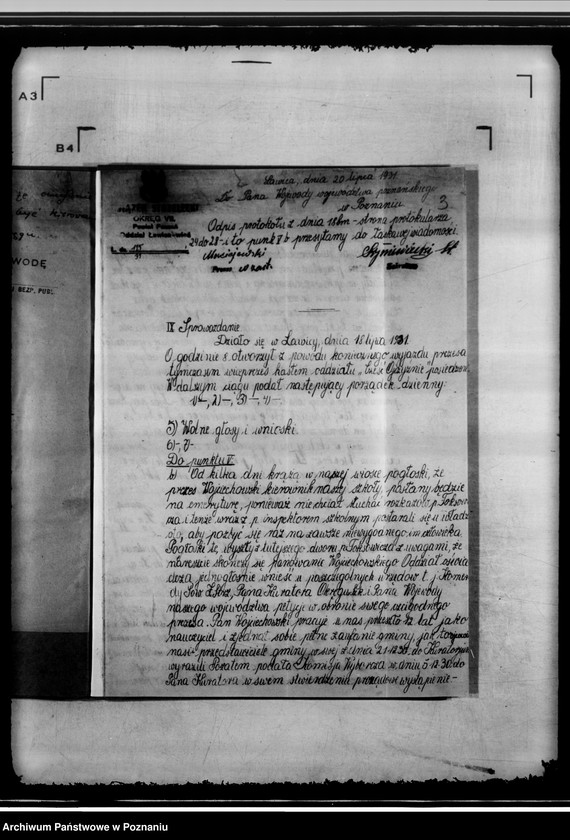 A3
B4
Ławica, dnia 20 lipca 1931
Do Pana Wojewody województwa poznańskiego
w Poznaniu
3
OKRĘG VII.
Powiat Poznań
Odpis protokołu z dnia 18 bm - strona protokularza
24 do 28 - i to punkt V b przesyłamy do łaskawej wiadomości.
WODĘ
BEZP. PUBL.
IX Sprawozdanie
Działo się w Ławicy, dnia 18 lipca 1931.
O godzinie 8. otworzył z powodu koniecznego wyjazdu prezesa
tymczasem wiceprezes hasłem oddziału "Cześć Ojczyźnie" posiedzenie.
W dalszym ciągu podał następujący porządek dzienny:
1) —, 2) —, 3) —, 4) —
5) Wolne głosy i wnioski
6) -, 7) -
Do punktu V
b) Od kilka dni krąża w naszej wiosce pogłoski, że
prezes Wojciechowski kierownik naszej szkoły, posłany będzie
na emeryturę, ponieważ nie chciał słuchać rozkazów p.
i tenże wraz z p. inspektorem szkolnym postarali się u władz
o to, aby pozbyć się raz na zawsze niewygodnego im człowieka.
Pogłoski te, wyszły z tutejszego dworu z uwagami, że
nareszcie skończy się panowanie Wojciechowskiego Oddział oświad
cza jednogłośnie wnieść u poszczególnych urzędów t. j. Komen
dy Pow. Pana Kuratora Okręgu szk. i Pana Wojewody
naszego województwa petycje w obronie swego czcigodnego
prezesa. Pan Wojciechowski pracuje u nas przeszło 12 lat jako
nauczyciel i zjednał sobie pełne zaufanie gminy, jak to
nasi przedstawiciele gminy w swej z dnia 21.12.30. do Kuratorjum
wyrazili Poza tem podała Komisja Wyborcza w dniu 5.12.30 do
Pana Kuratora w swem stwierdzenia porządne wystąpienie-
Archiwum Państwowe w Poznaniu